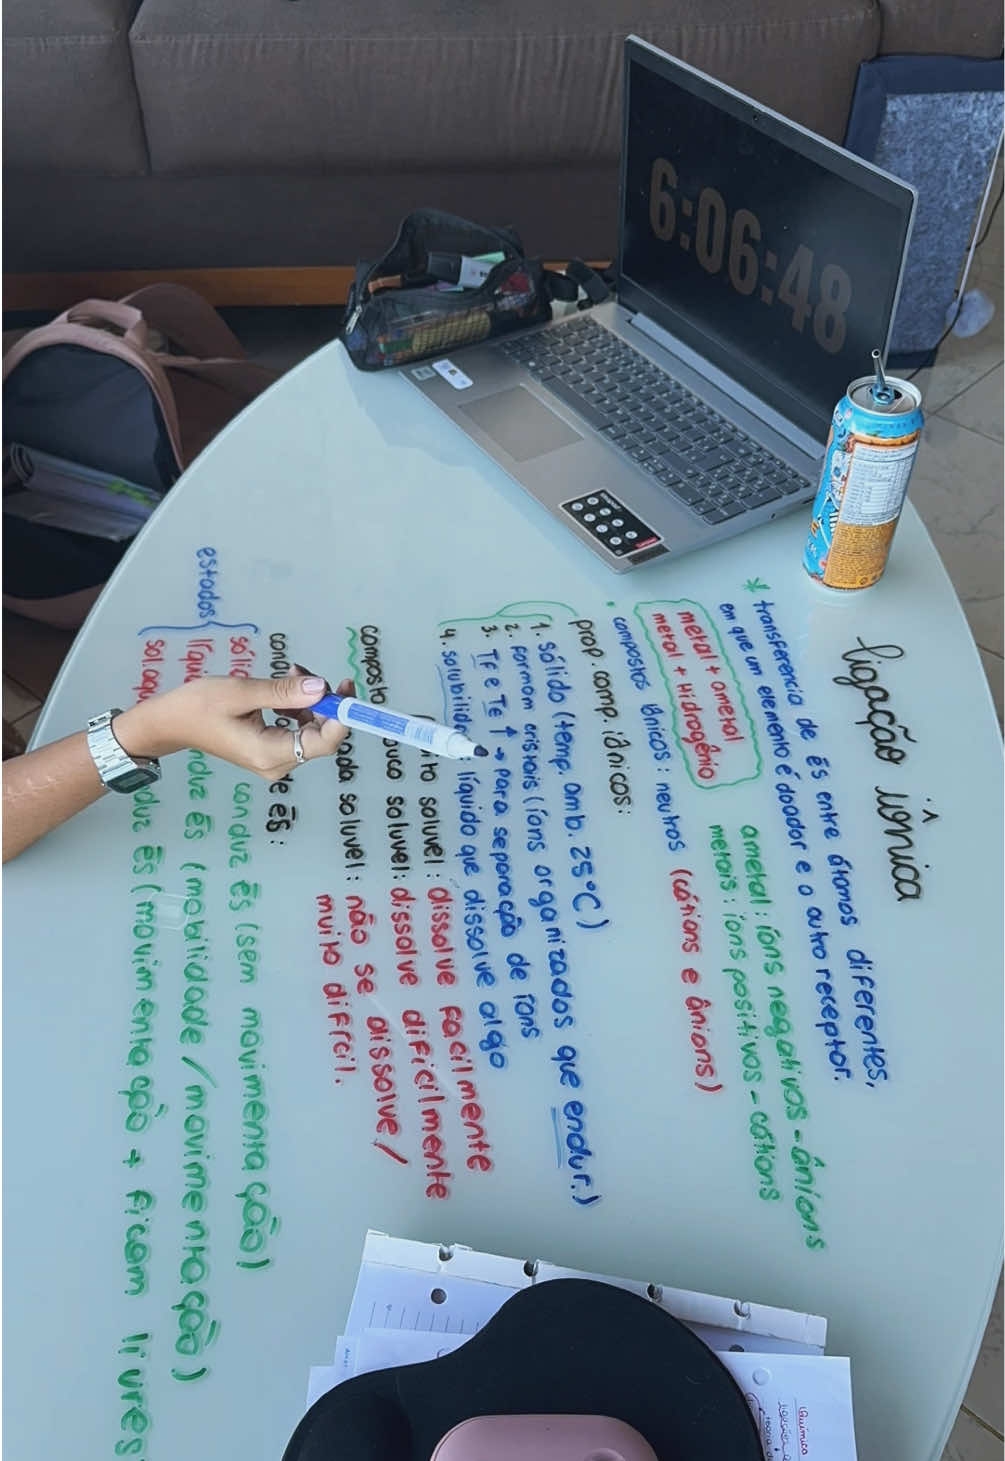 6:06:48
ligação iônica
* transferencia de ēs entre átomos diferentes,
em que um elemento é doador e o outro receptor.
metal + ametal
metal + Hidrogênio
ametal: íons negativos - ânions
metais: íons positivos - cátions
• compostos iônicos: neutros (cátions e ânions)
prop. comp. iônicos:
1. sólido (temp. amb. 25°C)
2. formam cristais (íons organizados que endur.)
3. TF e TE ↑ → para separação de íons
4. solubilida : líquido que dissolve algo
composto solúvel: dissolve facilmente
pouco solúvel: dissolve dificilmente
nada solúvel: não se dissolve/
muito difícil.
de ēs:
estados
conduz ēs (sem movimentação)
ēs (mobilidade/movimentação)
ēs (movimentação + ficam livres
Química